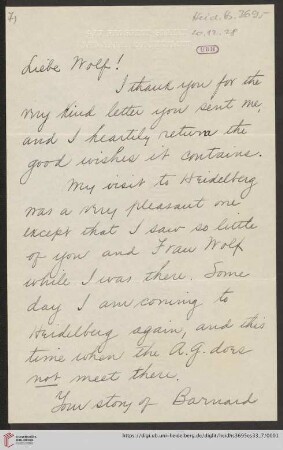 7,
Heid. Hs. 3695
UBH
Liebe Wolf!
I thank you for the
very kind letter you sent me,
and I heartily return the
good wishes it contains.
My visit to Heidelberg
was a very pleasant one
except that I saw so little
of you and Frau Wolf
while I was there. Some
day I am coming to
Heidelberg again, and this
time when the A.G. does
not meet there.
Your story of Barnard